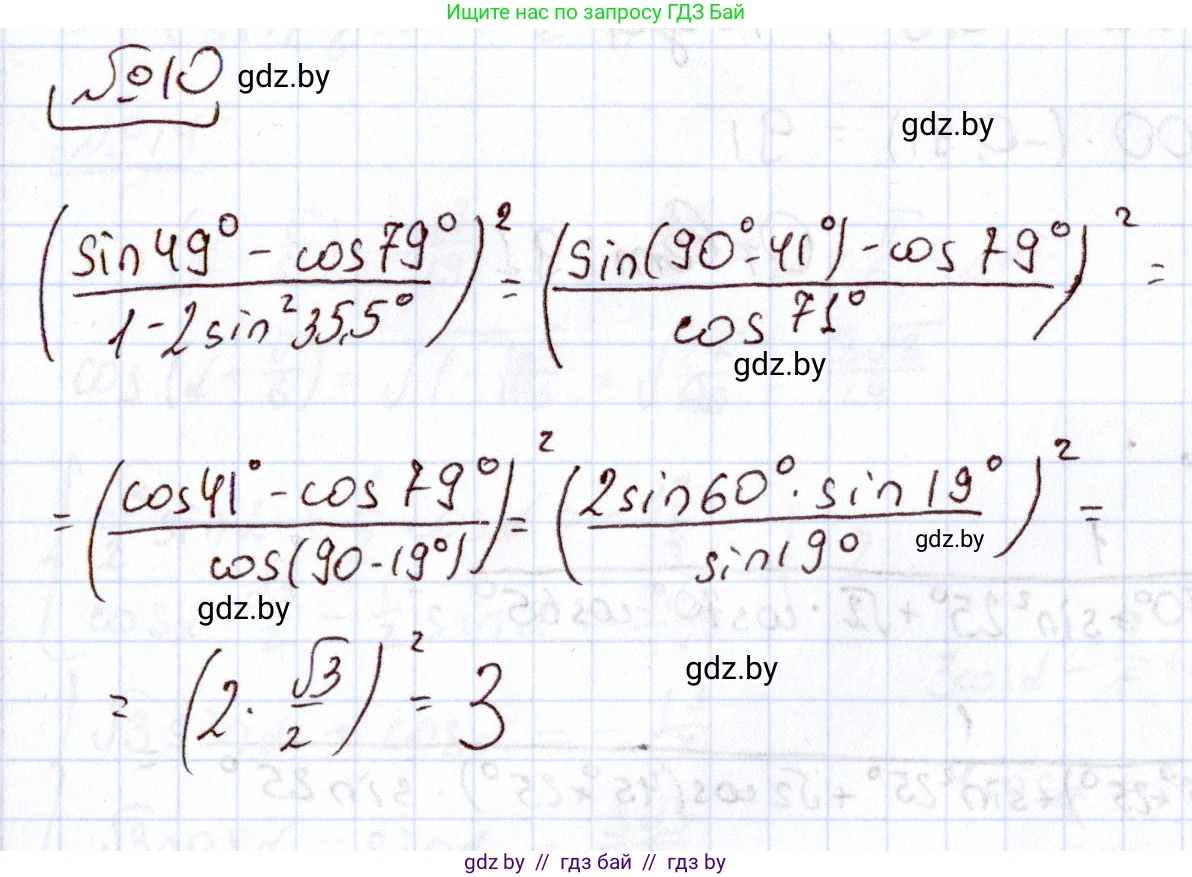 Ищите нас по запросу ГДЗ Бай
№10 gdz.by
gdz.by
(sin49° - cos79° / 1-2sin²35,5°)² = (sin(90°-41°) - cos79° / cos71°)² =
gdz.by
= (cos41° - cos79° / cos(90-19°))² = (2sin60° · sin19° / sin19°)² =
gdz.by
gdz.by
= (2 · √3/2)² = 3
gdz.by
gdz.by // гдз бай // гдз by